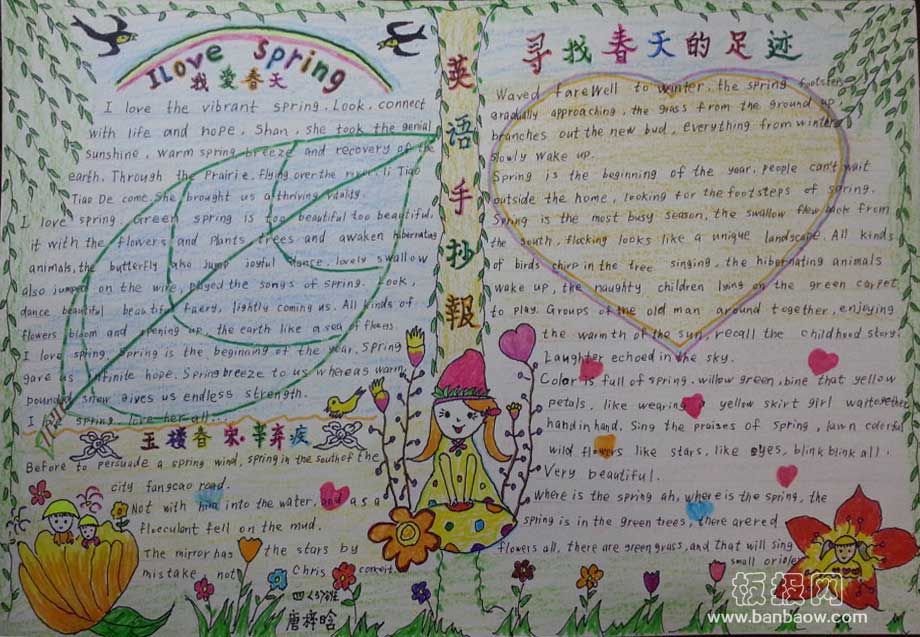 I Love Spring
我爱春天
I love the vibrant spring. Look, connect
with life and hope. Shan, she took the genial
sunshine, warm spring breeze and recovery of the
earth. Through the Prairie, flying over the river, li Tiao
Tiao De come. She brought us a thriving vitality.
I love spring. Green spring is too beautiful too beautiful,
it with the flowers and plants, trees and awaken hibernating
animals, the butterfly also jump joyful dance, lovely swallow
also jumped on the wire, played the songs of spring. Look,
dance beautiful beautiful faery, lightly coming us. All kinds of
flowers bloom and opening up, the earth like a sea of flowers.
I love spring, Spring is the beginning of the year, Spring
gave us infinite hope. Spring breeze to us whereas warm,
pounded snow gives us endless strength.
I love spring, love her all...
玉楼春 宋·辛弃疾
Before to persuade a spring wind, spring in the south of the
city fangcao road.
Not with him into the water, and as a
flucculant fell on the mud.
The mirror has the stars by
mistake not Chris concert.
唐梓晗
英语手抄報
寻找春天的足迹
Waved farewell to winter, the spring footstep
gradually approaching, the grass from the ground up,
branches out the new bud, everything from winter
slowly wake up.
Spring is the beginning of the year, people can't wait
outside the home, looking for the footsteps of spring.
Spring is the most busy season, the swallow flew back from
the south, flocking looks like a unique landscape. All kinds
of birds chirp in the tree singing, the hibernating animals
wake up, the naughty children lying on the green carpet
to play. Groups of the old man around together, enjoying
the warmth of the sun, recall the childhood story,
Laughter echoed in the sky.
Color is full of spring. willow green, bine that yellow
petals, like wearing a yellow skirt girl waitogether
hand in hand. Sing the praises of spring, lawn colorful
wild flowers like stars, like eyes, blink blink all.
Very beautiful.
Where is the spring ah, where is the spring, the
spring is in the green trees, there are red
flowers all, there are green grass, and that will sing
small oriole
板报网
www.banbaow.com